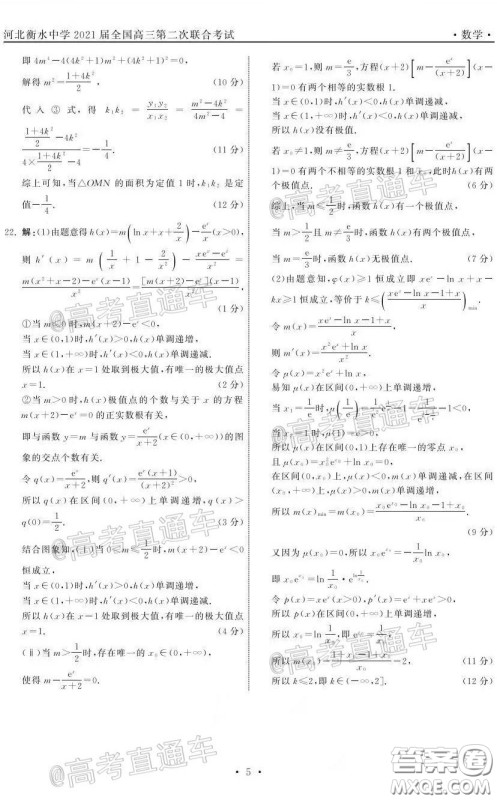 河北衡水中学 2021 届全国高三第二次联合考试
· 数学 ·
即 4m⁴-4(4k²+1)m²+(4k²+1)²=0,
解得 m²=(1+4k²)/2. (10 分)
代入③式，得 k₁k₂=y₁y₂/x₁x₂=(m²-4k²)/(4m²-4)=
((1+4k²)/2-4k²)/(4×(1+4k²)/2-4)=-1/4. (11 分)
综上可知,当△OMN 的面积为定值 1 时,k₁k₂ 是定
值-1/4. (12 分)
22. 解:(1)由题意得 h(x)=m(ln x+x+2/x)-eˣ/x(x>0),
则 h′(x)=m(1/x+1-2/x²)-(xeˣ-eˣ)/x²=
(m(x²+x-2)-eˣ(x-1))/x²=[m(x+2)-eˣ](x-1)/x².
(1 分)
①当 m≤0 时,
当 x∈(0,1)时,h′(x)>0,h(x)单调递增,
当 x∈(1,+∞)时,h′(x)<0,h(x)单调递减.
所以 h(x)在 x=1 处取到极大值,有唯一的极大值点
x=1. (2 分)
②当 m>0 时,h(x)极值点的个数与关于 x 的方程
m(x+2)-eˣ=0 的正实数根有关.
即与函数 y=m 与函数 y=eˣ/(x+2)(x∈(0,+∞))的图
象的交点个数有关.
令 q(x)=eˣ/(x+2),则 q′(x)=eˣ(x+1)/(x+2)²>0,
所以 q(x)在区间(0,+∞)上单调递增,q(x)>
q(0)=1/2. (3 分)
结合图象知,(ⅰ)当 0<m≤1/2 时,m(x+2)-eˣ<0
恒成立.
当 x∈(0,1)时,h′(x)>0,h(x)单调递增,
当 x∈(1,+∞)时,h′(x)<0,h(x)单调递减.
所以 h(x)在 x=1 处取到极大值,有唯一的极大值点
x=1. (4 分)
(ⅱ)当 m>1/2 时,存在 x₀∈(0,+∞),
使得 m-eˣ/(x+2)=0.
若 x₀=1,则 m=e/3,方程(x+2)[m-eˣ/(x+2)](x-
1)=0 有两个相等的实数根 1.
当 x∈(0,1)时,h′(x)<0,h(x)单调递减,
当 x∈(1,+∞)时,h′(x)<0,h(x)单调递减,
所以 h(x)没有极值.
若 x₀≠1,则 m≠e/3,方程(x+2)[m-eˣ/(x+2)](x-
1)=0 有两个不相等的实数根 1 和 x₀,此时 h(x)有两
个极值点. (6 分)
综上,当 m≤1/2 时,函数 h(x)有一个极值点,
当 m>1/2 且 m≠e/3 时,函数 h(x)有两个极值点,
当 m=e/3 时,函数 h(x)无极值点. (7 分)
(2)由题意知,φ(x)≥1 恒成立即 xeˣ-ln x+x-
kx≥1 恒成立,等价于 k≤((xeˣ-ln x-1+x)/x)min.
令 m(x)=(xeˣ-ln x-1+x)/x,
则 m′(x)=(x²eˣ+ln x)/x².
令 μ(x)=x²eˣ+ln x,
易知 μ(x)在区间(0,+∞)上单调递增,
当 x₁=1/e 时,
当 x=1 时,μ(1)=e>0.
所以 μ(x)在区间(0,+∞)上存在唯一的零点 x₀,
在区间(0,x₀)上,μ(x)<0,m(x)单调递减,在区间
(x₀,+∞)上,μ(x)>0,m(x)单调递增,
所以 m(x)min=m(x₀)=(x₀eˣ⁰-ln x₀-1+x₀)/x₀.
(9 分)
令 p(x)=xeˣ(x>0),p′(x)=eˣ+xeˣ>0,
所以 p(x)在区间(0,+∞)上单调递增,
所以 x₀=ln 1/x₀,即 eˣ⁰=1/x₀,
所以 m(x₀)=(1+x₀-1+x₀)/x₀=2, (11 分)
所以 k≤2,即 k∈(-∞,2]. (12 分)
· 5 ·
@高考直通车
@高考直通车
@高考直通车
@高考直通车
答案圈
MXQE.COM